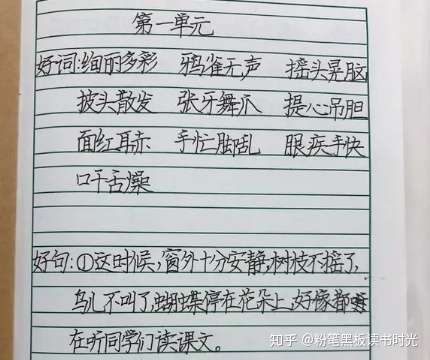 第一单元
好词:绚丽多彩 鸦雀无声 摇头晃脑
披头散发 张牙舞爪 提心吊胆
面红耳赤 手忙脚乱 眼疾手快
口干舌燥
好句:①这时候,窗外十分安静,树枝不摇了,
鸟儿不叫了,蝴蝶停在花朵上,好像都
在听同学们读课文。
知乎 @粉笔黑板读书时光